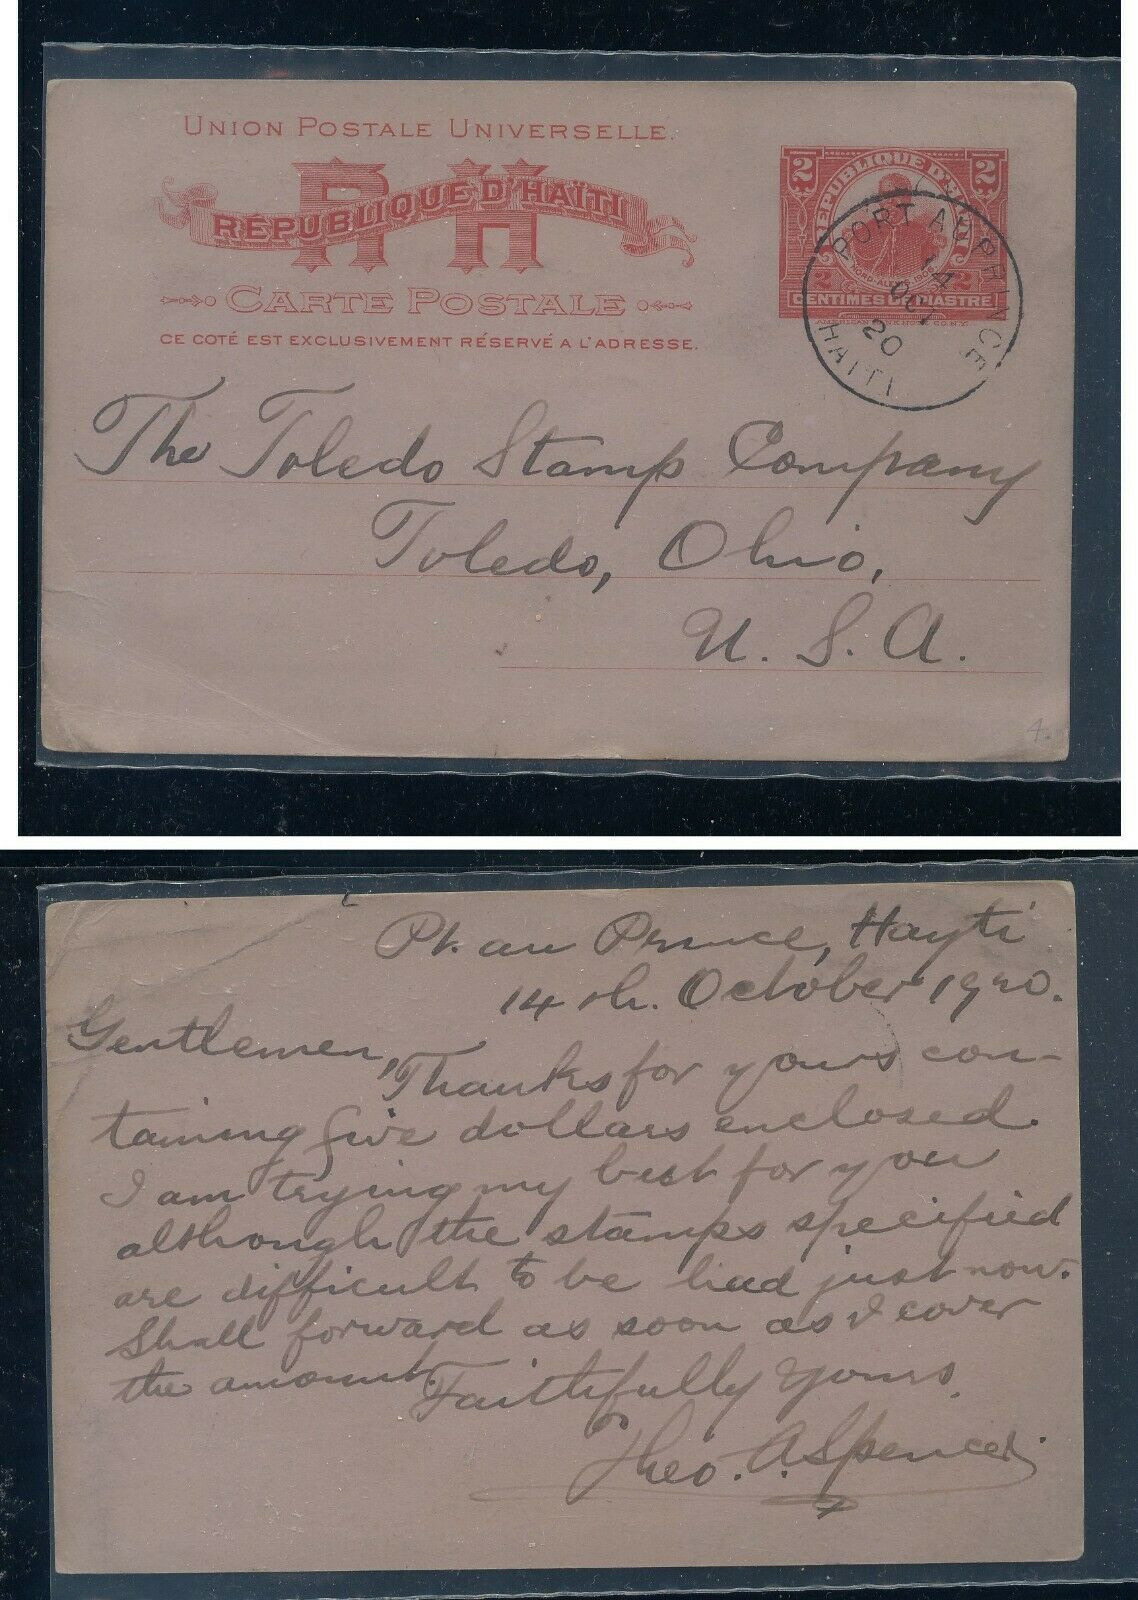 UNION POSTALE UNIVERSELLE.
RH
RÉPUBLIQUE D'HAÏTI
CARTE POSTALE
CE COTÉ EST EXCLUSIVEMENT RÉSERVÉ A L'ADRESSE.
2 RÉPUBLIQUE D'HAITI 2
2 CENTIMES DE PIASTRE 2
PORT AU PRINCE
14
OCT
20
HAITI
The Toledo Stamp Company
Toledo, Ohio,
U. S. A.
4.
Pt. au Prince, Hayti
14 th. October 1920.
Gentlemen,
Thanks for yours con-
taining five dollars enclosed.
I am trying my best for you
although the stamps specified
are difficult to be had just now.
Shall forward as soon as I cover
the amount.
Faithfully Yours,
Theo. A. Spencer.